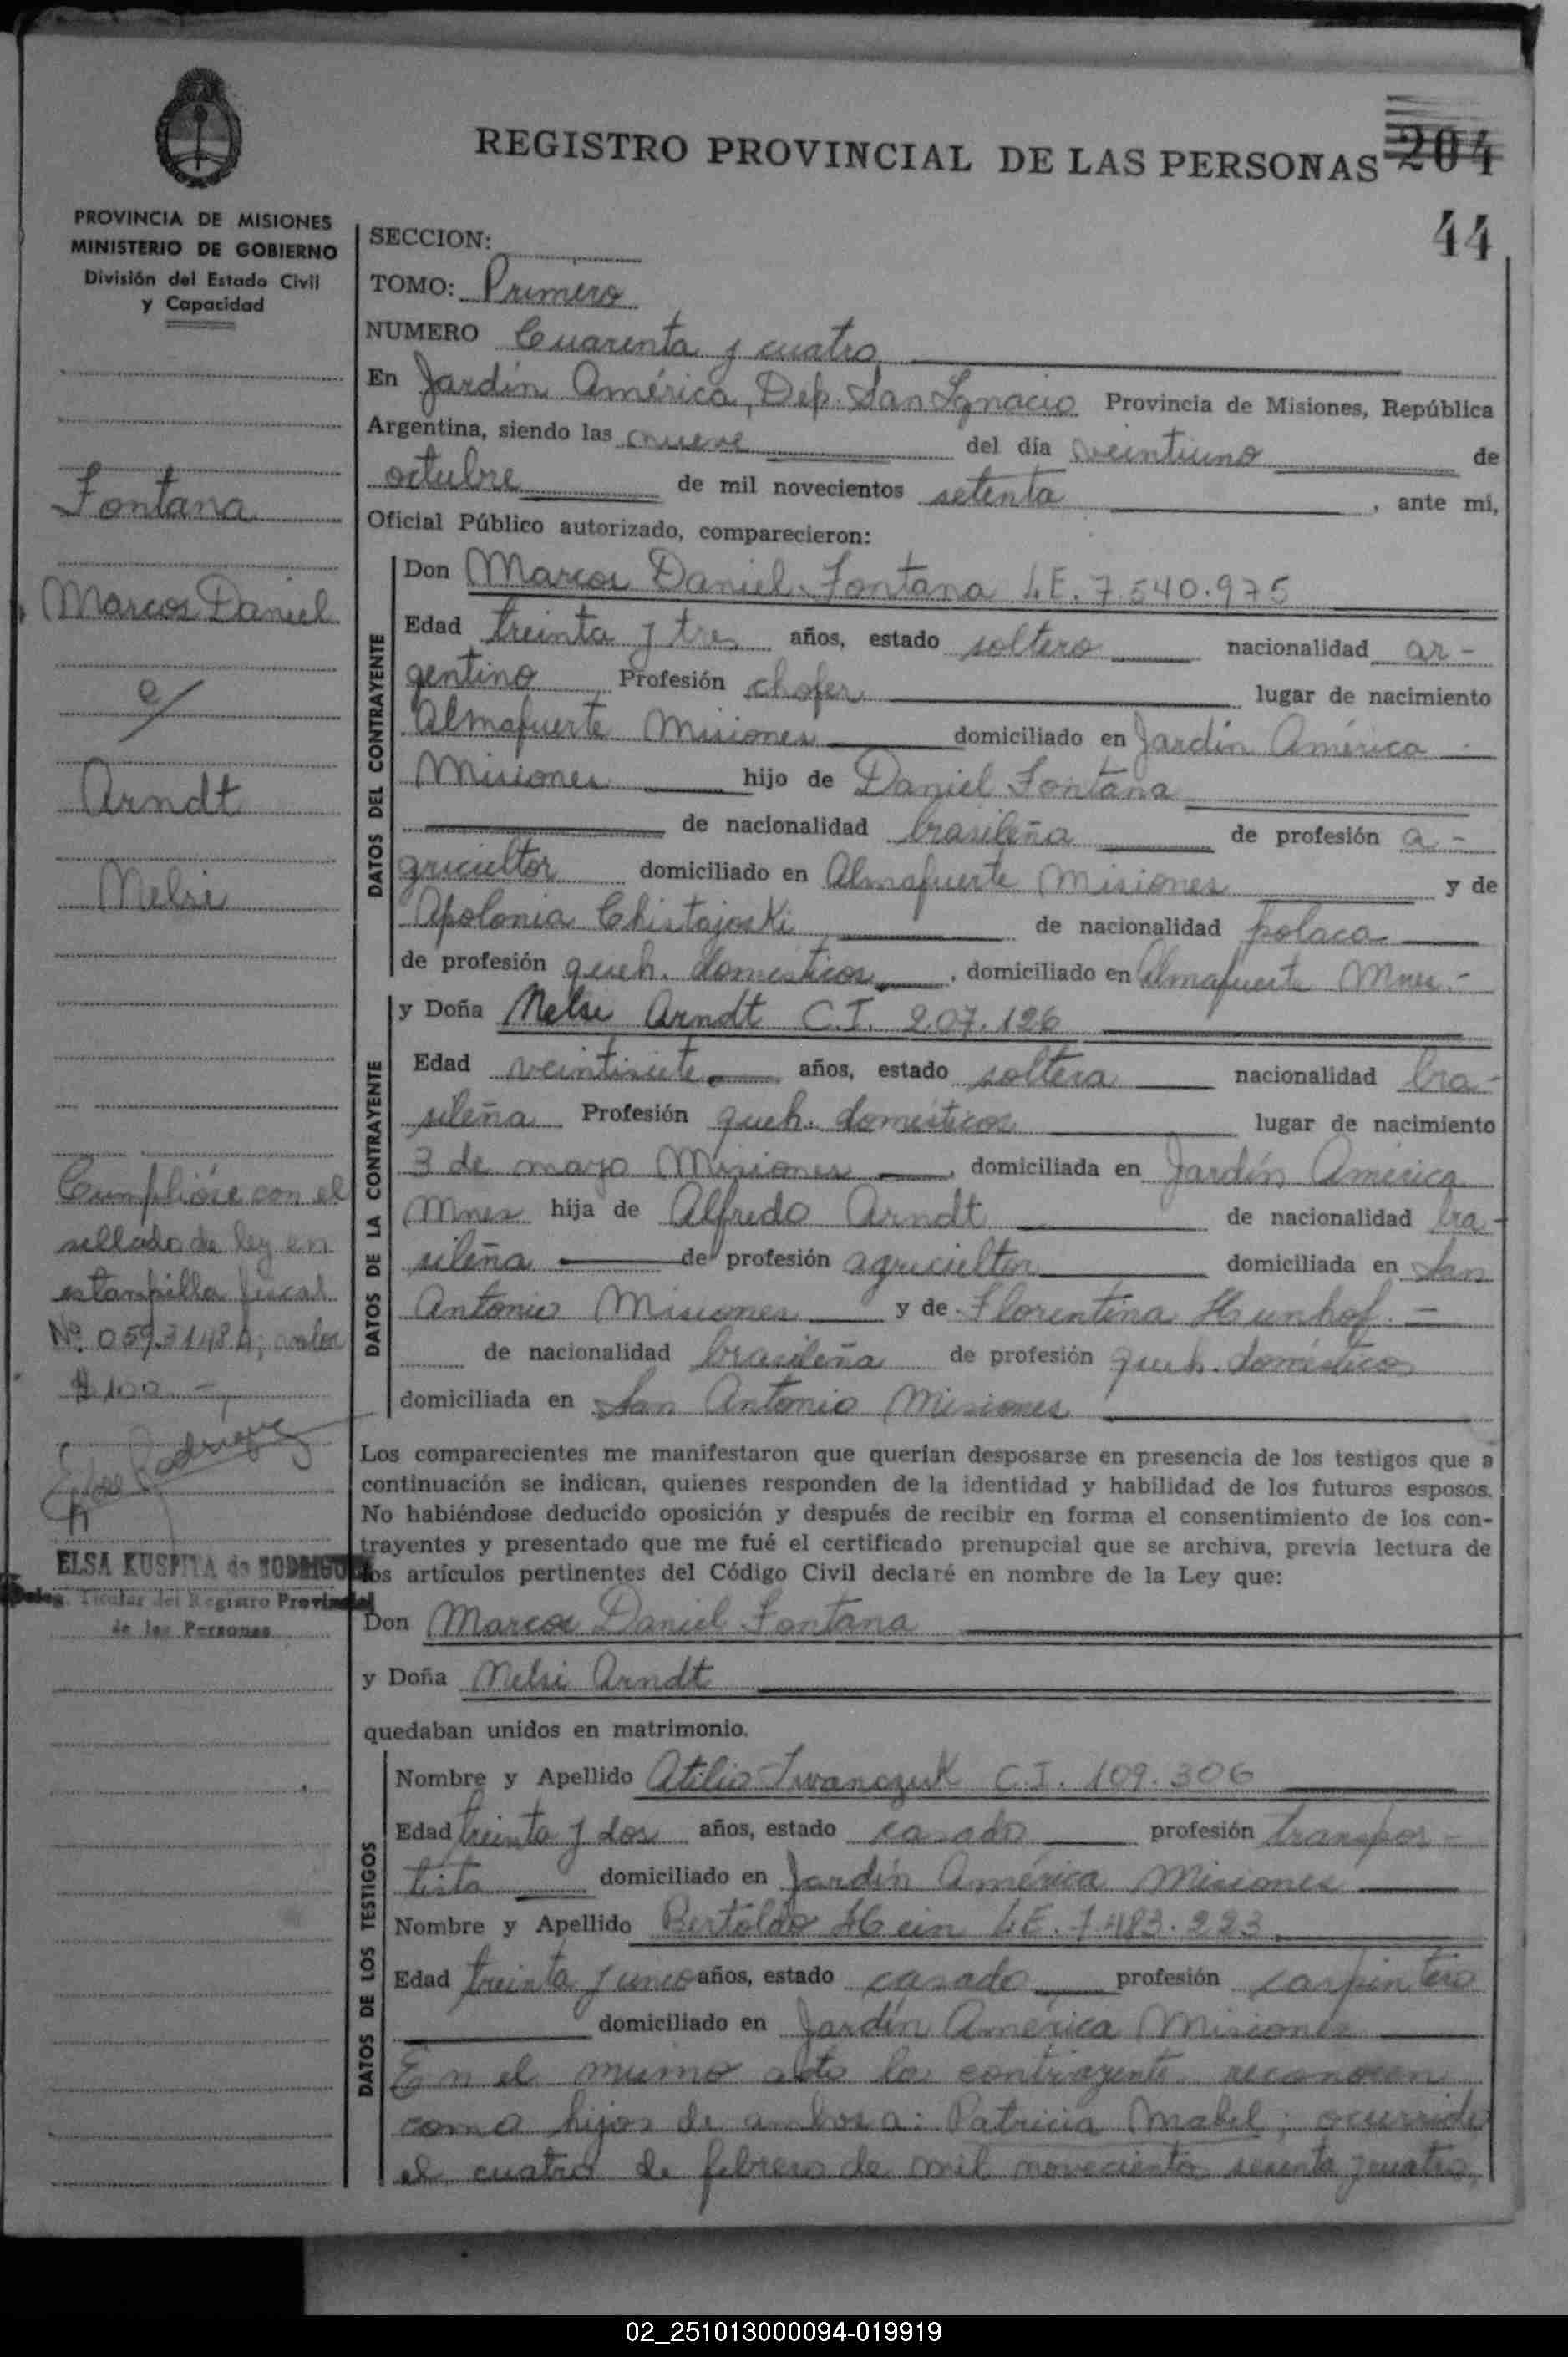 REGISTRO PROVINCIAL DE LAS PERSONAS 204
44
PROVINCIA DE MISIONES
MINISTERIO DE GOBIERNO
División del Estado Civil
y Capacidad
Fontana
Marcos Daniel
c/
Arndt
Nelsi
Cumplióse con el
sellado de ley en
estampilla fiscal
Nº 0593148 A; valor
$ 100.-
ELSA KUSPITA de RODRIGUEZ
Deleg. Titular del Registro Provincial
de las Personas
SECCION:
TOMO: Primero
NUMERO Cuarenta y cuatro
En Jardín América, Dep. San Ignacio Provincia de Misiones, República
Argentina, siendo las nueve del día veintiuno de
octubre de mil novecientos setenta, ante mi,
Oficial Público autorizado, comparecieron:
DATOS DEL CONTRAYENTE
Don Marcos Daniel Fontana L.E. 7.540.975
Edad treinta y tres años, estado soltero nacionalidad ar-
gentino Profesión chofer lugar de nacimiento
Almafuerte Misiones domiciliado en Jardín América
Misiones hijo de Daniel Fontana
de nacionalidad brasileña de profesión a-
gricultor domiciliado en Almafuerte Misiones y de
Apolonia Chistajoski de nacionalidad polaca
de profesión queh. domésticos, domiciliado en Almafuerte Mnes.-
DATOS DE LA CONTRAYENTE
y Doña Nelsi Arndt C.I. 207.126
Edad veintisiete años, estado soltera nacionalidad bra-
sileña Profesión queh. domésticos lugar de nacimiento
3 de mayo Misiones, domiciliada en Jardín América
Mnes hija de Alfredo Arndt de nacionalidad bra-
sileña de profesión agricultor domiciliada en San
Antonio Misiones y de Florentina Hunhof.-
de nacionalidad brasileña de profesión queh. domésticos
domiciliada en San Antonio Misiones
Los comparecientes me manifestaron que querían desposarse en presencia de los testigos que a
continuación se indican, quienes responden de la identidad y habilidad de los futuros esposos.
No habiéndose deducido oposición y después de recibir en forma el consentimiento de los con-
trayentes y presentado que me fué el certificado prenupcial que se archiva, previa lectura de
los artículos pertinentes del Código Civil declaré en nombre de la Ley que:
Don Marcos Daniel Fontana
y Doña Nelsi Arndt
quedaban unidos en matrimonio.
DATOS DE LOS TESTIGOS
Nombre y Apellido Atilio Iwanczuk C.I. 109.306
Edad treinta y dos años, estado casado profesión transpor-
tista domiciliado en Jardín América Misiones
Nombre y Apellido Bertoldo Hein L.E. 7.483.223
Edad treinta y cinco años, estado casado profesión carpintero
domiciliado en Jardín América Misiones
En el mismo acto los contrayentes reconocen
como hijos de ambos a: Patricia Mabel; ocurrido
el cuatro de febrero de mil novecientos sesenta y cuatro,
02_251013000094-019919